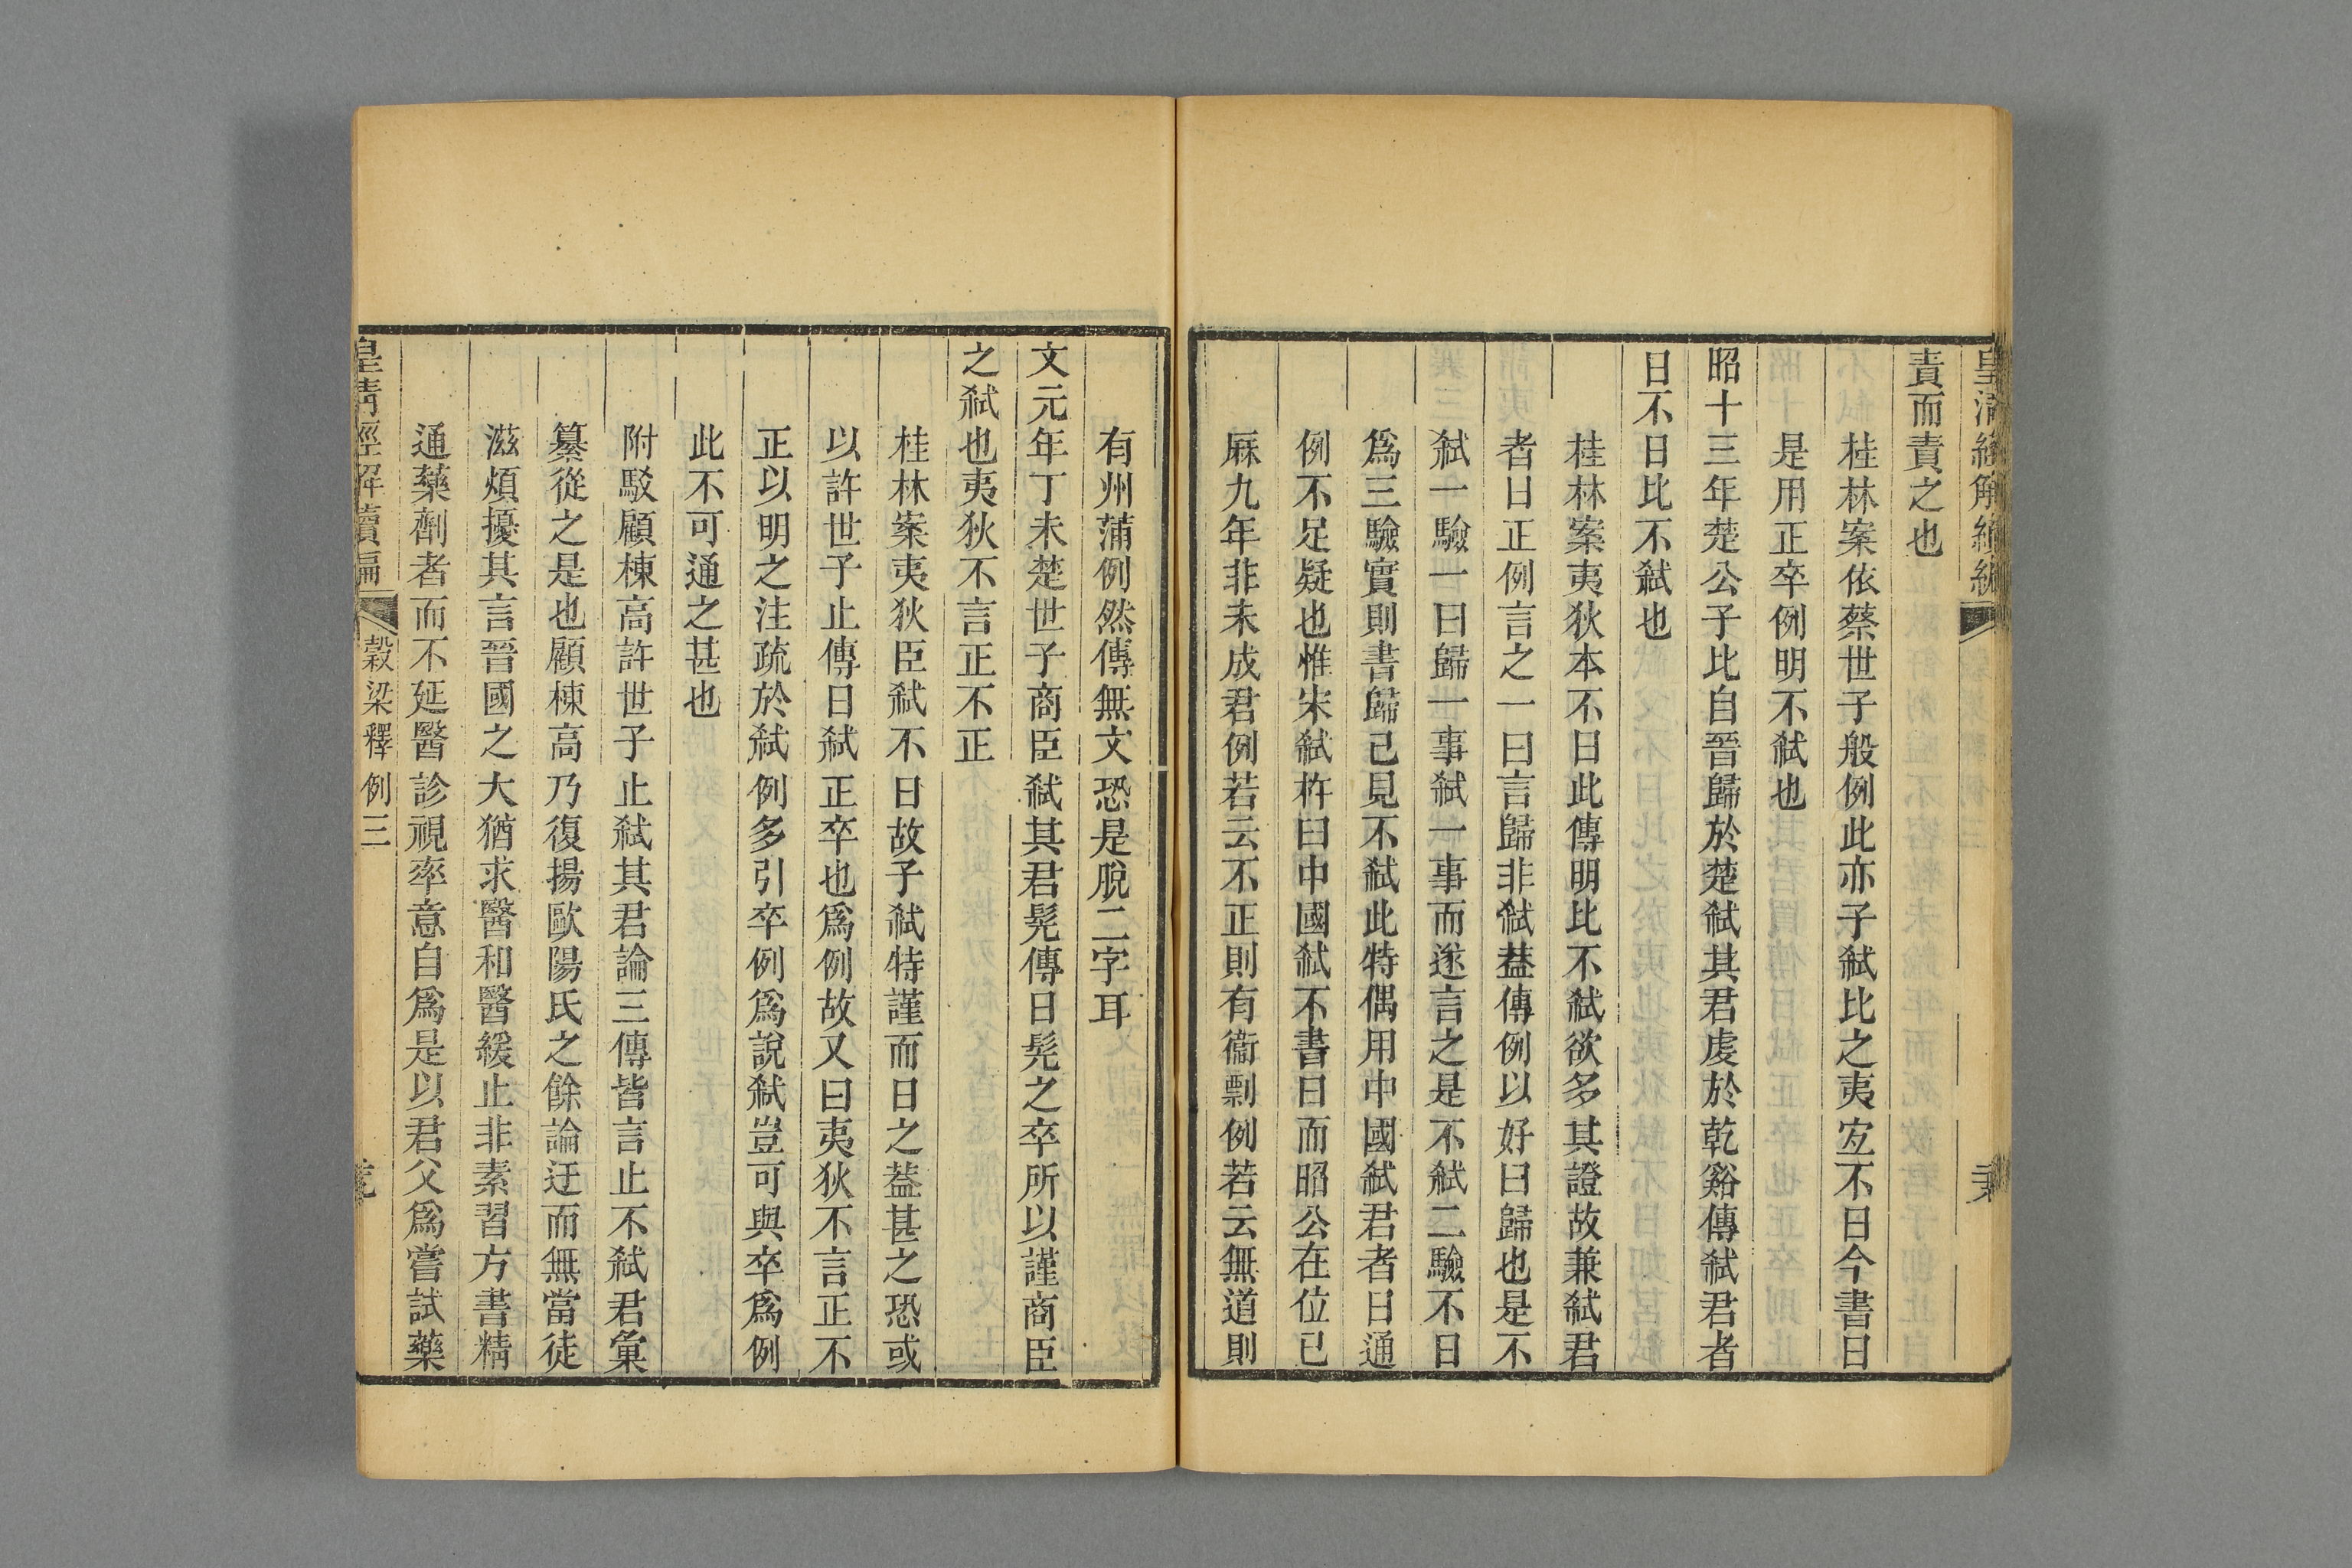 責而責之也
桂林案依蔡世子般例此亦子弒比之夷宐不日今書日
是用正卒例明不弒也
昭十三年楚公子比自晉歸於楚弒其君虔於乾谿傳弒君者
日不日比不弒也
桂林案夷狄本不日此傳明比不弒欲多其證故兼弒君
者日正例言之一曰言歸非弒葢傳例以好曰歸也是不
弒一驗一曰歸一事弒一事而遂言之是不弒二驗不日
爲三驗實則書歸已見不弒此特偶用中國弒君者日通
例不足疑也惟宋弒杵臼中國弒不書日而昭公在位已
厤九年非未成君例若云不正則有衞剽例若云無道則
有州蒲例然傳無文恐是脫二字耳
文元年丁未楚世子商臣弒其君髡傳日髡之卒所以謹商臣
之弒也夷狄不言正不正
桂林案夷狄臣弒不日故子弒特謹而日之葢甚之恐或
以許世子止傳日弒正卒也爲例故又曰夷狄不言正不
正以明之注疏於弒例多引卒例爲說弒豈可與卒爲例
此不可通之甚也
附駁顧棟高許世子止弒其君論三傳皆言止不弒君彙
纂從之是也顧棟高乃復揚歐陽氏之餘論迂而無當徒
滋煩擾其言晉國之大猶求醫和醫緩止非素習方書精
通藥劑者而不延醫診視率意自爲是以君父爲嘗試藥
皇清經解續編 穀梁釋例三